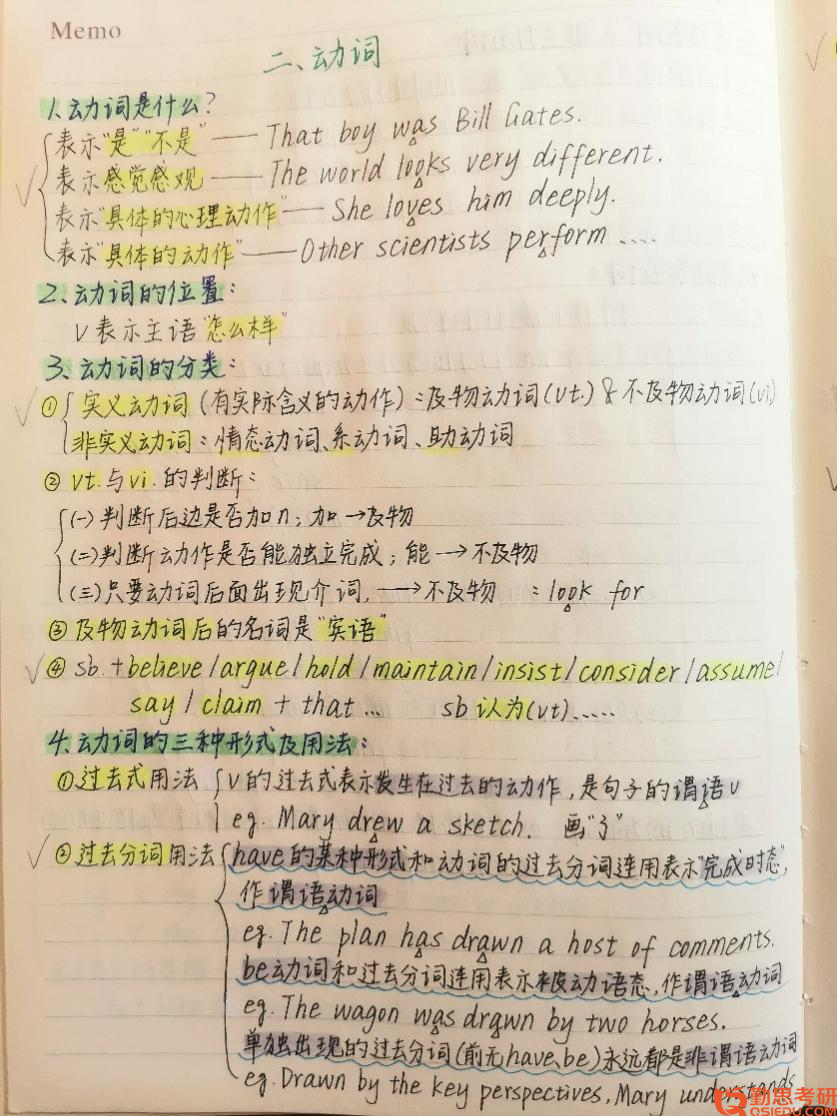 Memo
二、动词
1、动词是什么?
表示"是""不是" —— That boy was Bill Gates.
表示感觉感观 —— The world looks very different.
表示"具体的心理动作" —— She loves him deeply.
表示"具体的动作" —— Other scientists perform ....
2、动词的位置:
V表示主语"怎么样"
3、动词的分类:
① 实义动词 (有实际含义的动作):及物动词(vt.) & 不及物动词(vi)
非实义动词:情态动词、系动词、助动词
② vt.与vi.的判断:
(一)判断后边是否加n;加→及物
(二)判断动作是否能独立完成;能→不及物
(三)只要动词后面出现介词,→不及物 :look for
③ 及物动词后的名词是"宾语"
④ sb.+believe/argue/hold/maintain/insist/consider/assume/
say/claim + that ... sb认为(vt).....
4、动词的三种形式及用法:
①过去式用法 V的过去式表示发生在过去的动作,是句子的谓语v
eg. Mary drew a sketch. 画"了"
②过去分词用法 have的某种形式和动词的过去分词连用表示"完成时态",
作谓语动词
eg. The plan has drawn a host of comments.
be动词和过去分词连用表示被动语态,作谓语动词
eg. The wagon was drawn by two horses.
单独出现的过去分词(前无have、be)永远都是非谓语动词
eg. Drawn by the key perspectives, Mary understands
勤思考研
QSIEDU.COM